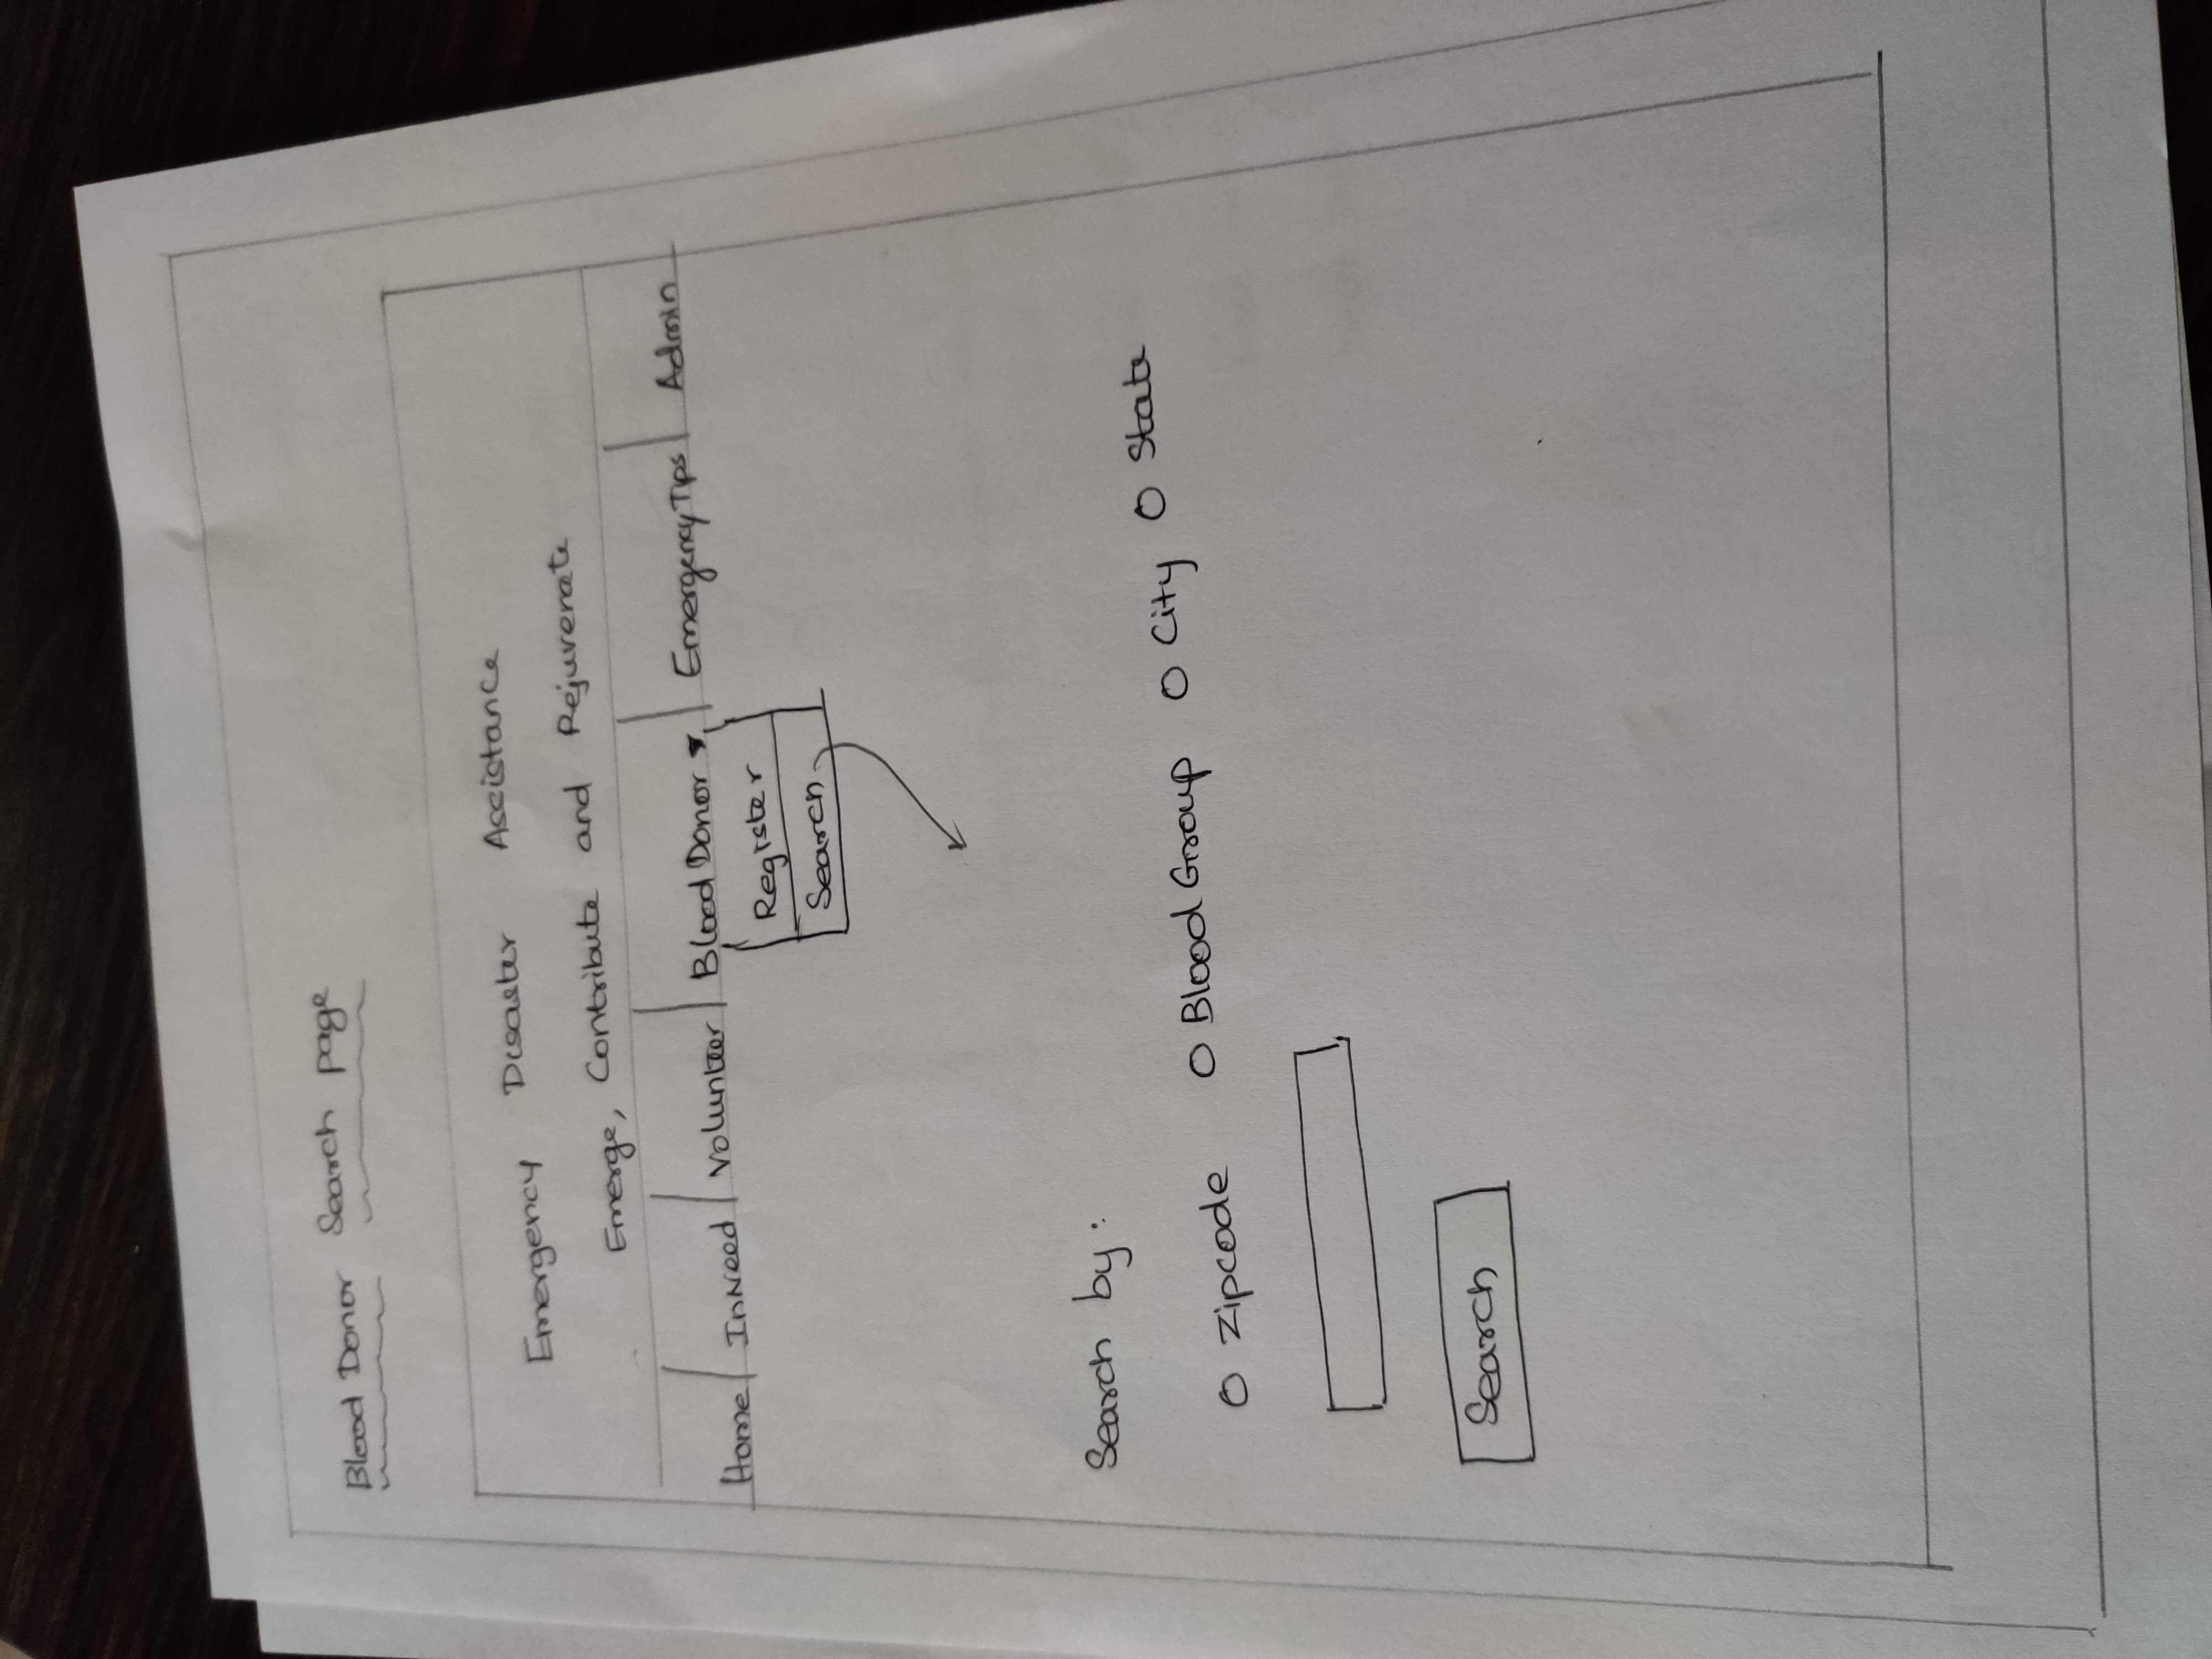 Blood Donor Search page
Emergency Disaster Assistance
Emerge, Contribute and Rejuvenate
Home InNeed Volunteer Blood Donor EmergencyTips Admin
Register
Search
Search by:
Zipcode Blood Group City State
Search